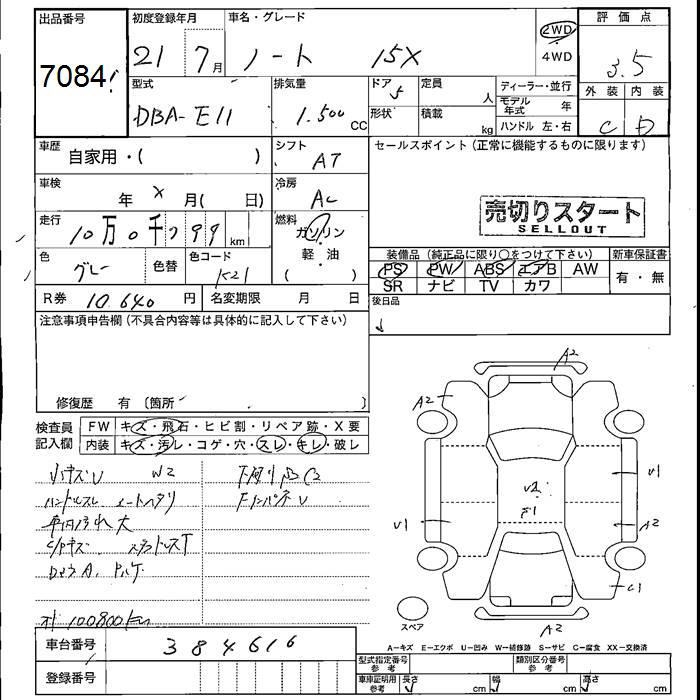 出品番号 初度登録年月 車名・グレード 評価点
7084 21 7月 ノート 15X 2WD 4WD 3.5
外装 内装
C D
型式 排気量 ドア 定員 ディーラー・並行
DBA-E11 1.500 CC 5 人 モデル年式 年
形状 積載 kg ハンドル 左・右
車歴 自家用・( ) シフト AT セールスポイント(正常に機能するものに限ります)
車検 年 X 月( 日) 冷房 AC
売切りスタート
SELLOUT
走行 10万0千799 km 燃料 ガソリン・軽油 ( )
色 グレー 色替 色コード K21
装備品(純正品に限り○をつけて下さい) 新車保証書
PS PW ABS エアB AW 有・無
SR ナビ TV カワ
R券 10.640円 名変期限 月 日 後日品
注意事項申告欄(不具合内容等は具体的に記入して下さい)
修復歴 有 〔箇所 〕
検査員記入欄 FW キズ・飛石・ヒビ割・リペア跡・X要
内装 キズ・汚レ・コゲ・穴・スレ・キレ・破レ
小キズU W2
ハンドルスレ シートヘタリ
車内汚れ大
オド 100800km
A2
A2
U1
U1
A2
C1
A2
スペア
A−キズ E−エクボ U−凹み W−補修跡 S−サビ C−腐食 XX−交換済
車台番号 384616
登録番号
型式指定番号 参考 類別区分番号 参考
車庫証明用 参考 長さ cm 幅 cm 高さ cm